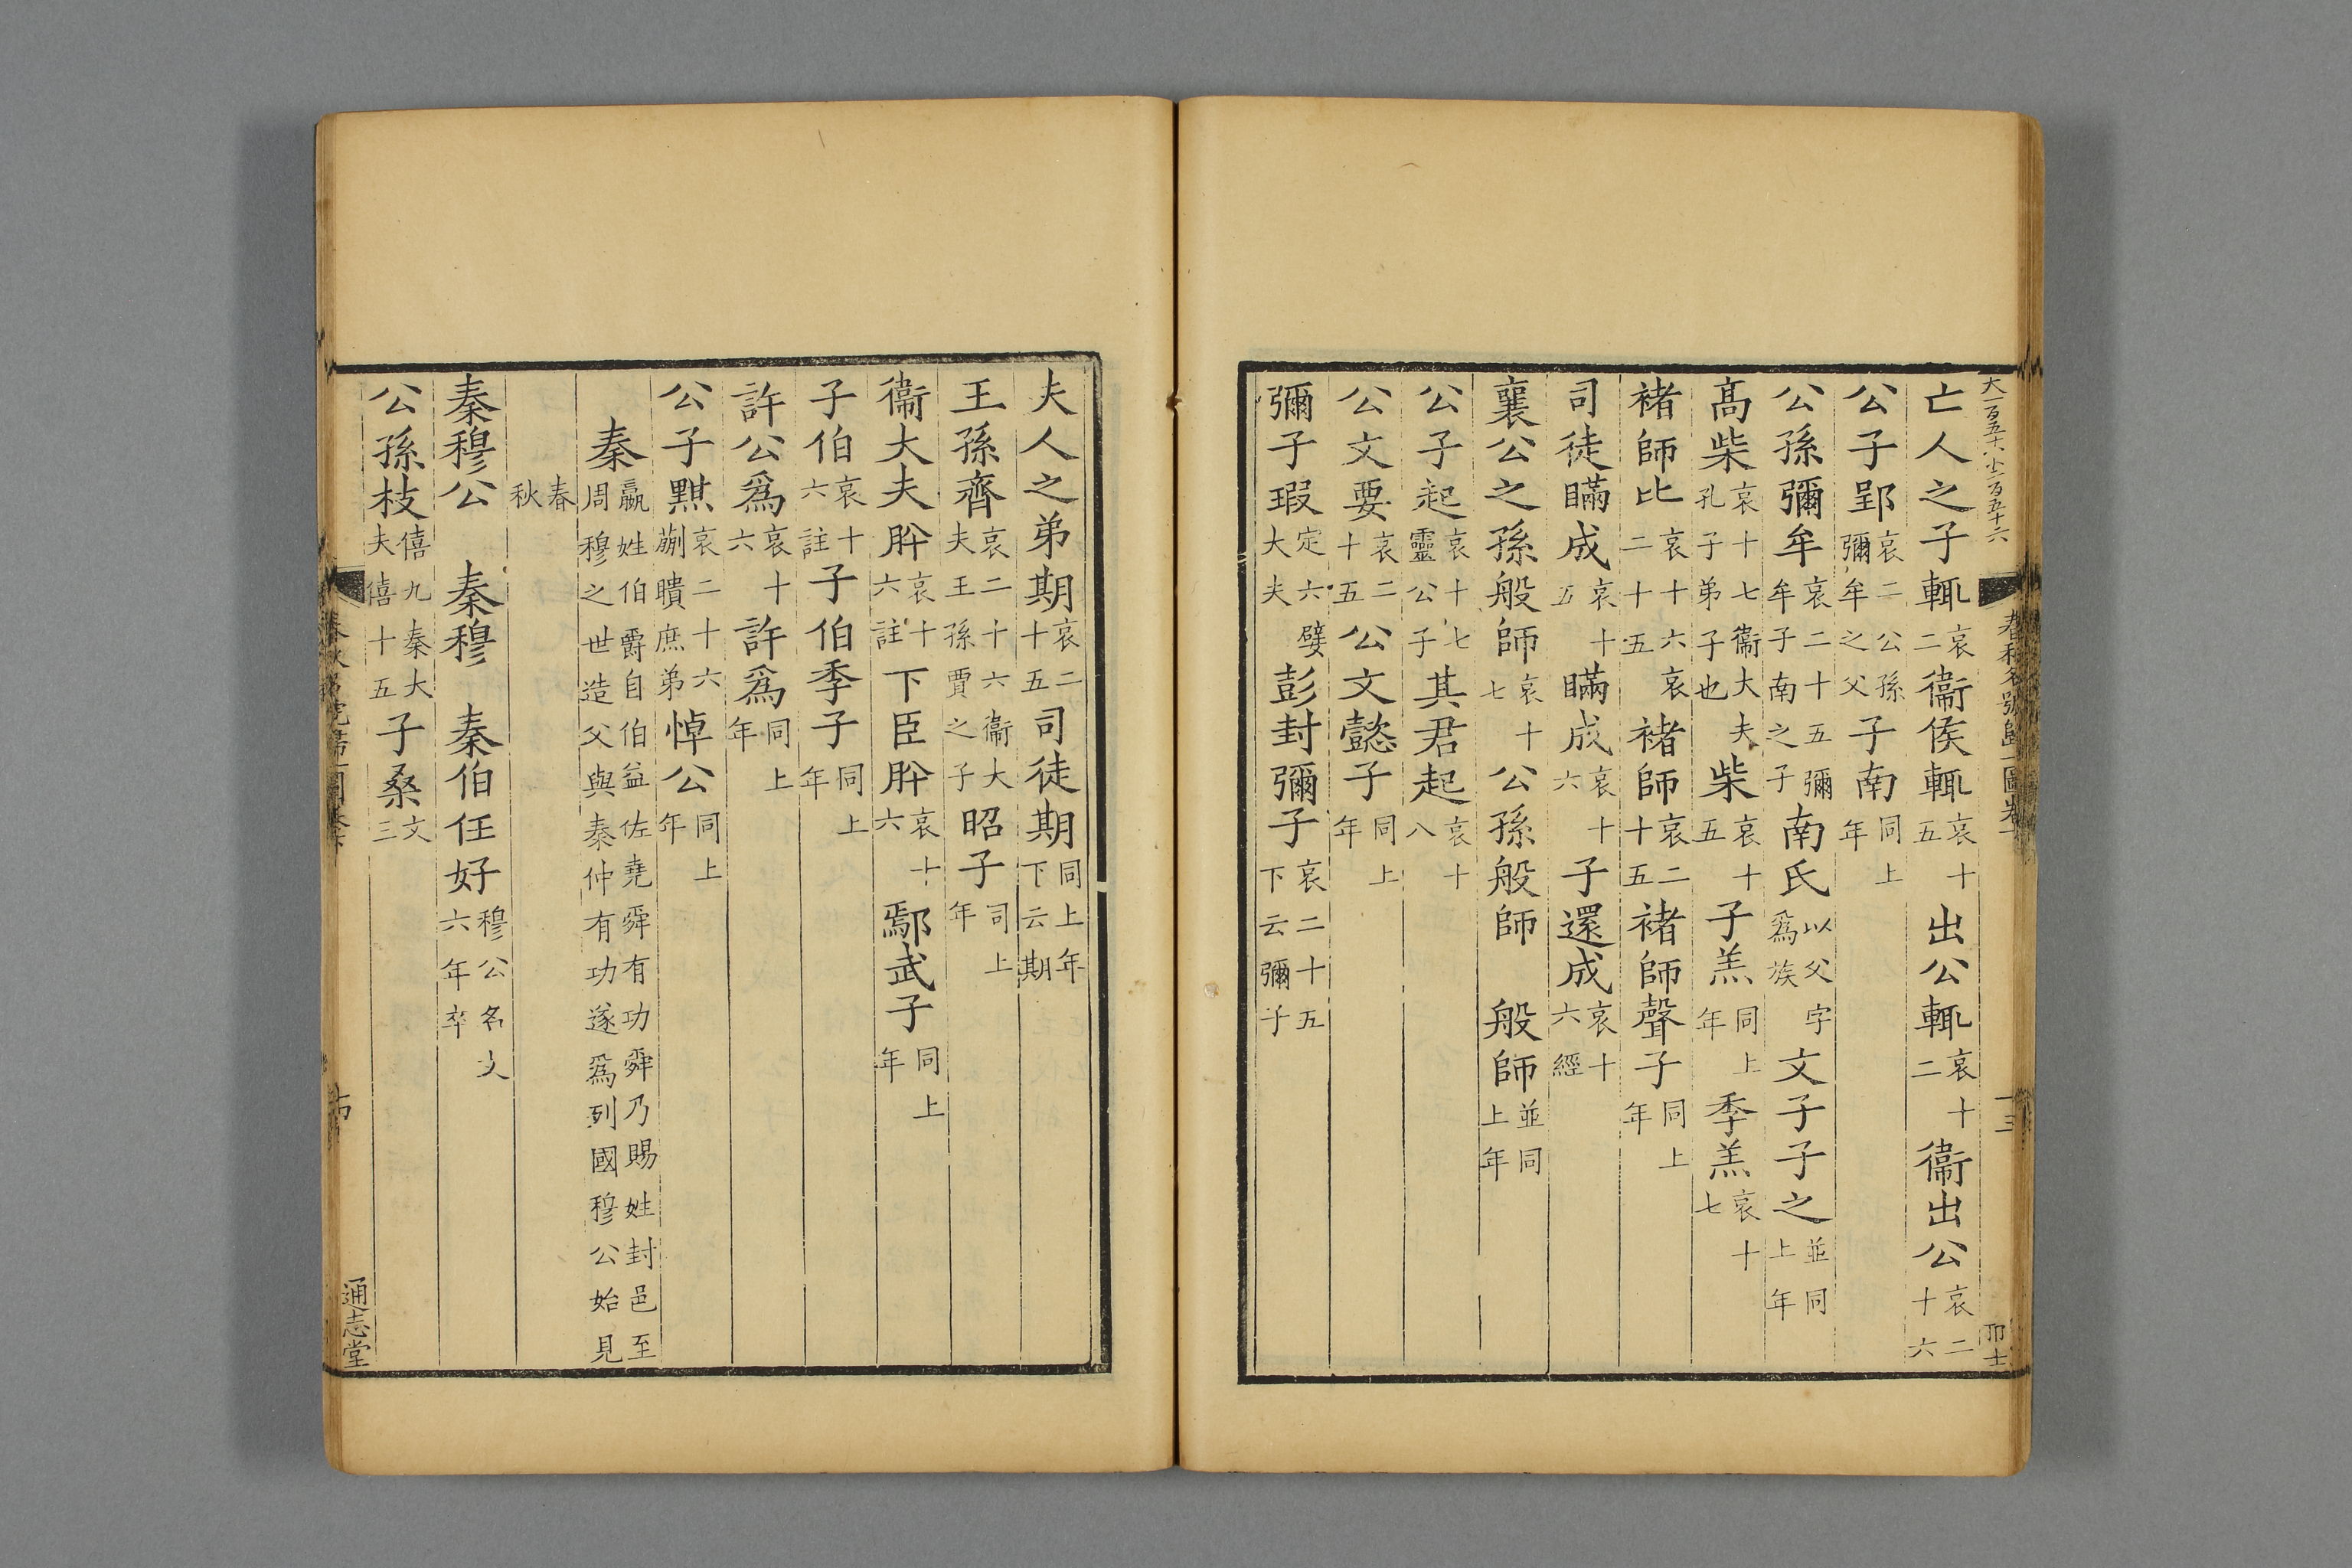 大一百五十六小二百五十六
春秋名號歸一圖卷下
十三
亡人之子輒哀二衞侯輒哀十五出公輒哀十二衞出公哀二十六
公子郢哀二公孫彌牟之父子南同上年
公孫彌牟哀二十五彌牟子南之子南氏以父字爲族文子子之並同上年
高柴哀十七衞大夫孔子弟子也柴哀十五子羔同上年季羔哀十七
褚師比哀十六哀二十五褚師哀二十五褚師聲子同上年
司徒瞞成哀十五瞞成哀十六子還成哀十六經
襄公之孫般師哀十七公孫般師 般師並同上年
公子起哀十七靈公子其君起哀十八
公文要哀二十五公文懿子同上年
彌子瑕定六嬖大夫彭封彌子哀二十五下云彌子
夫人之弟期哀二十五司徒期同上年下云期
王孫齊哀二十六衞大夫王孫賈之子昭子司上年
衞大夫肸哀十六註下臣肸哀十六鄢武子同上年
子伯哀十六註子伯季子同上年
許公爲哀十六許爲同上年
公子黚哀二十六蒯聵庶弟悼公同上年
秦嬴姓伯爵自伯益佐堯舜有功舜乃賜姓封邑至周穆之世造父與秦仲有功遂爲列國穆公始見
春秋
秦穆公 秦穆 秦伯任好穆公名文六年卒
公孫枝僖九秦大夫僖十五子桑文三
通志堂